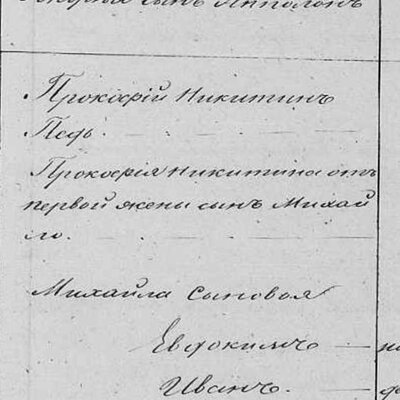 сынъ Антонъ
Прокофій Никитинъ
Педь.
Прокофія Никитина отъ
первой жены сынъ Михай
ло.
Михайла сыновья
Евдокимъ
Иванъ.